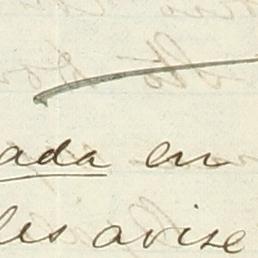 ada en
les avise